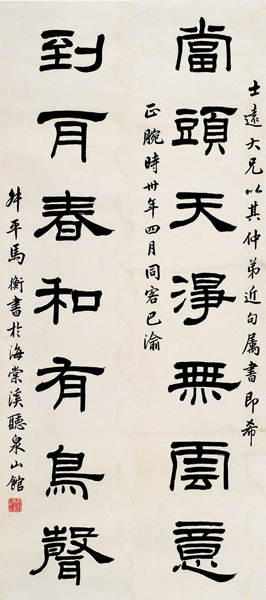 士遠大兄以其仲弟近句属書即希
當頭天淨無雲意
正腕時卅年四月同客巴渝
到耳春和有鳥聲
弟平馬衡書於海棠溪聽泉山館